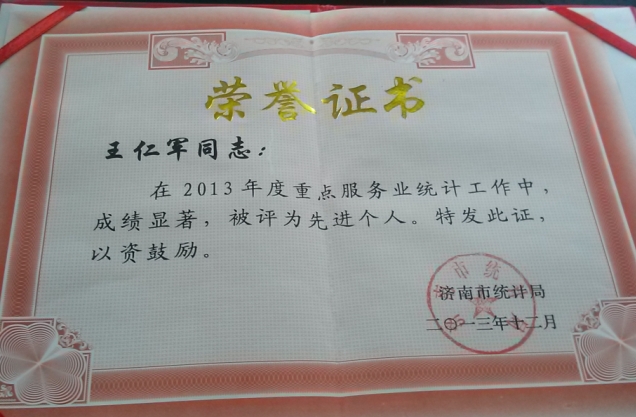 荣誉证书
王仁军同志：
在2013年度重点服务业统计工作中，
成绩显著，被评为先进个人。特发此证，
以资鼓励。
济南市统计局
二〇一三年十二月